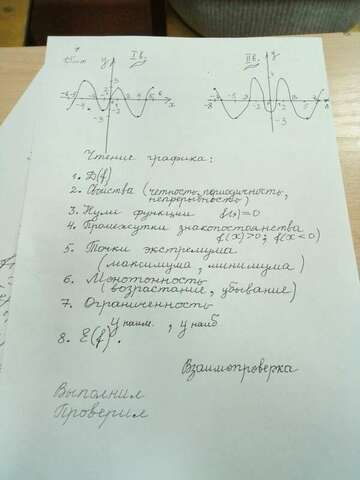 15 мин
I в.
II в.
Чтение графика:
1. D(f)
2. Свойства (четность, периодичность,
непрерывность)
3. Нули функции f(x)=0
4. Промежутки знакопостоянства
f(x)>0; f(x<0)
5. Точки экстремума
(максимума, минимума)
6. Монотонность
возрастание, убывание)
7. Ограниченность
y наим. , y наиб
8. E(f).
Взаимопроверка
Выполнил
Проверил